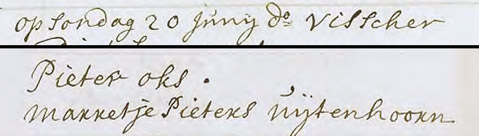 op sondag 20 junij do visscher
Pieter oks.
marretje Pieters uijtenhoorn